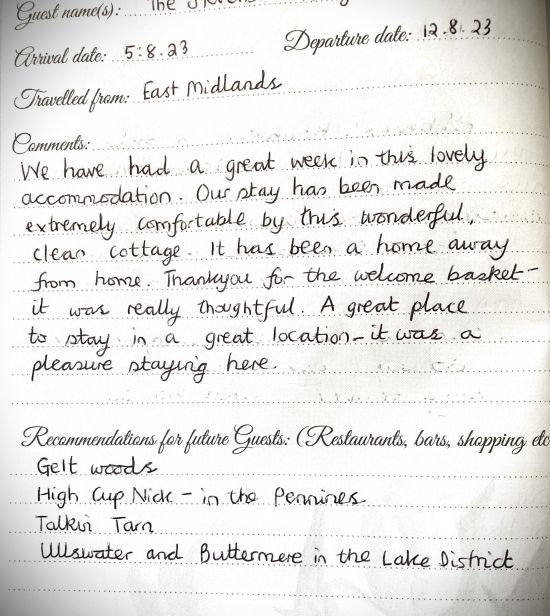 Guest name(s): The
Arrival date: 5:8.23
Departure date: 12.8.23
Travelled from: East Midlands
Comments:
We have had a great week in this lovely
accommodation. Our stay has been made
extremely comfortable by this wonderful,
clean cottage. It has been a home away
from home. Thankyou for the welcome basket-
it was really thoughtful. A great place
to stay in a great location-it was a
pleasure staying here.
Recommendations for future Guests: (Restaurants, bars, shopping etc
Gelt woods
High Cup Nick - in the Pennines
Talkin Tarn
Ullswater and Buttermere in the Lake District